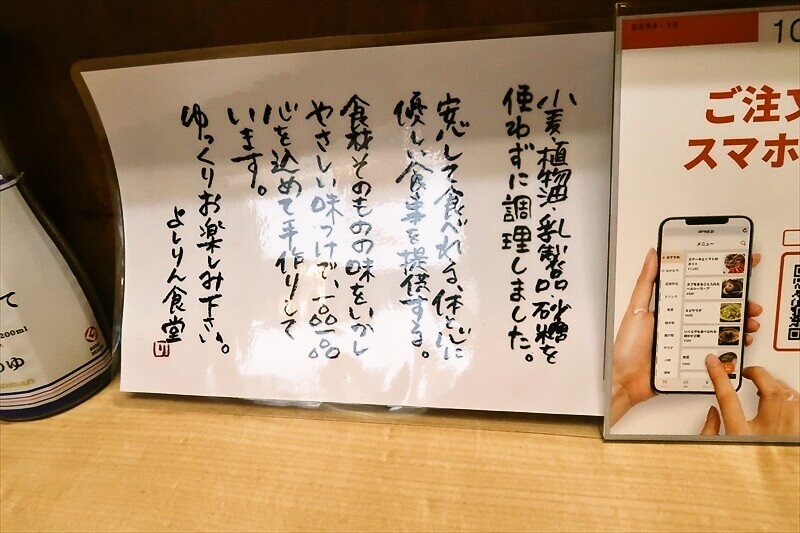 小麦・植物油・乳製品・砂糖を
使わずに調理しました。
安心して食べれる、体と心に
優しい食事を提供する。
食材そのものの味をいかし
やさしい味つけで、一品一品
心を込めて手作りして
います。
ゆっくりお楽しみ下さい。
よしりん食堂
ご注文
スマホ
メニュー
200ml
て
つゆ
10